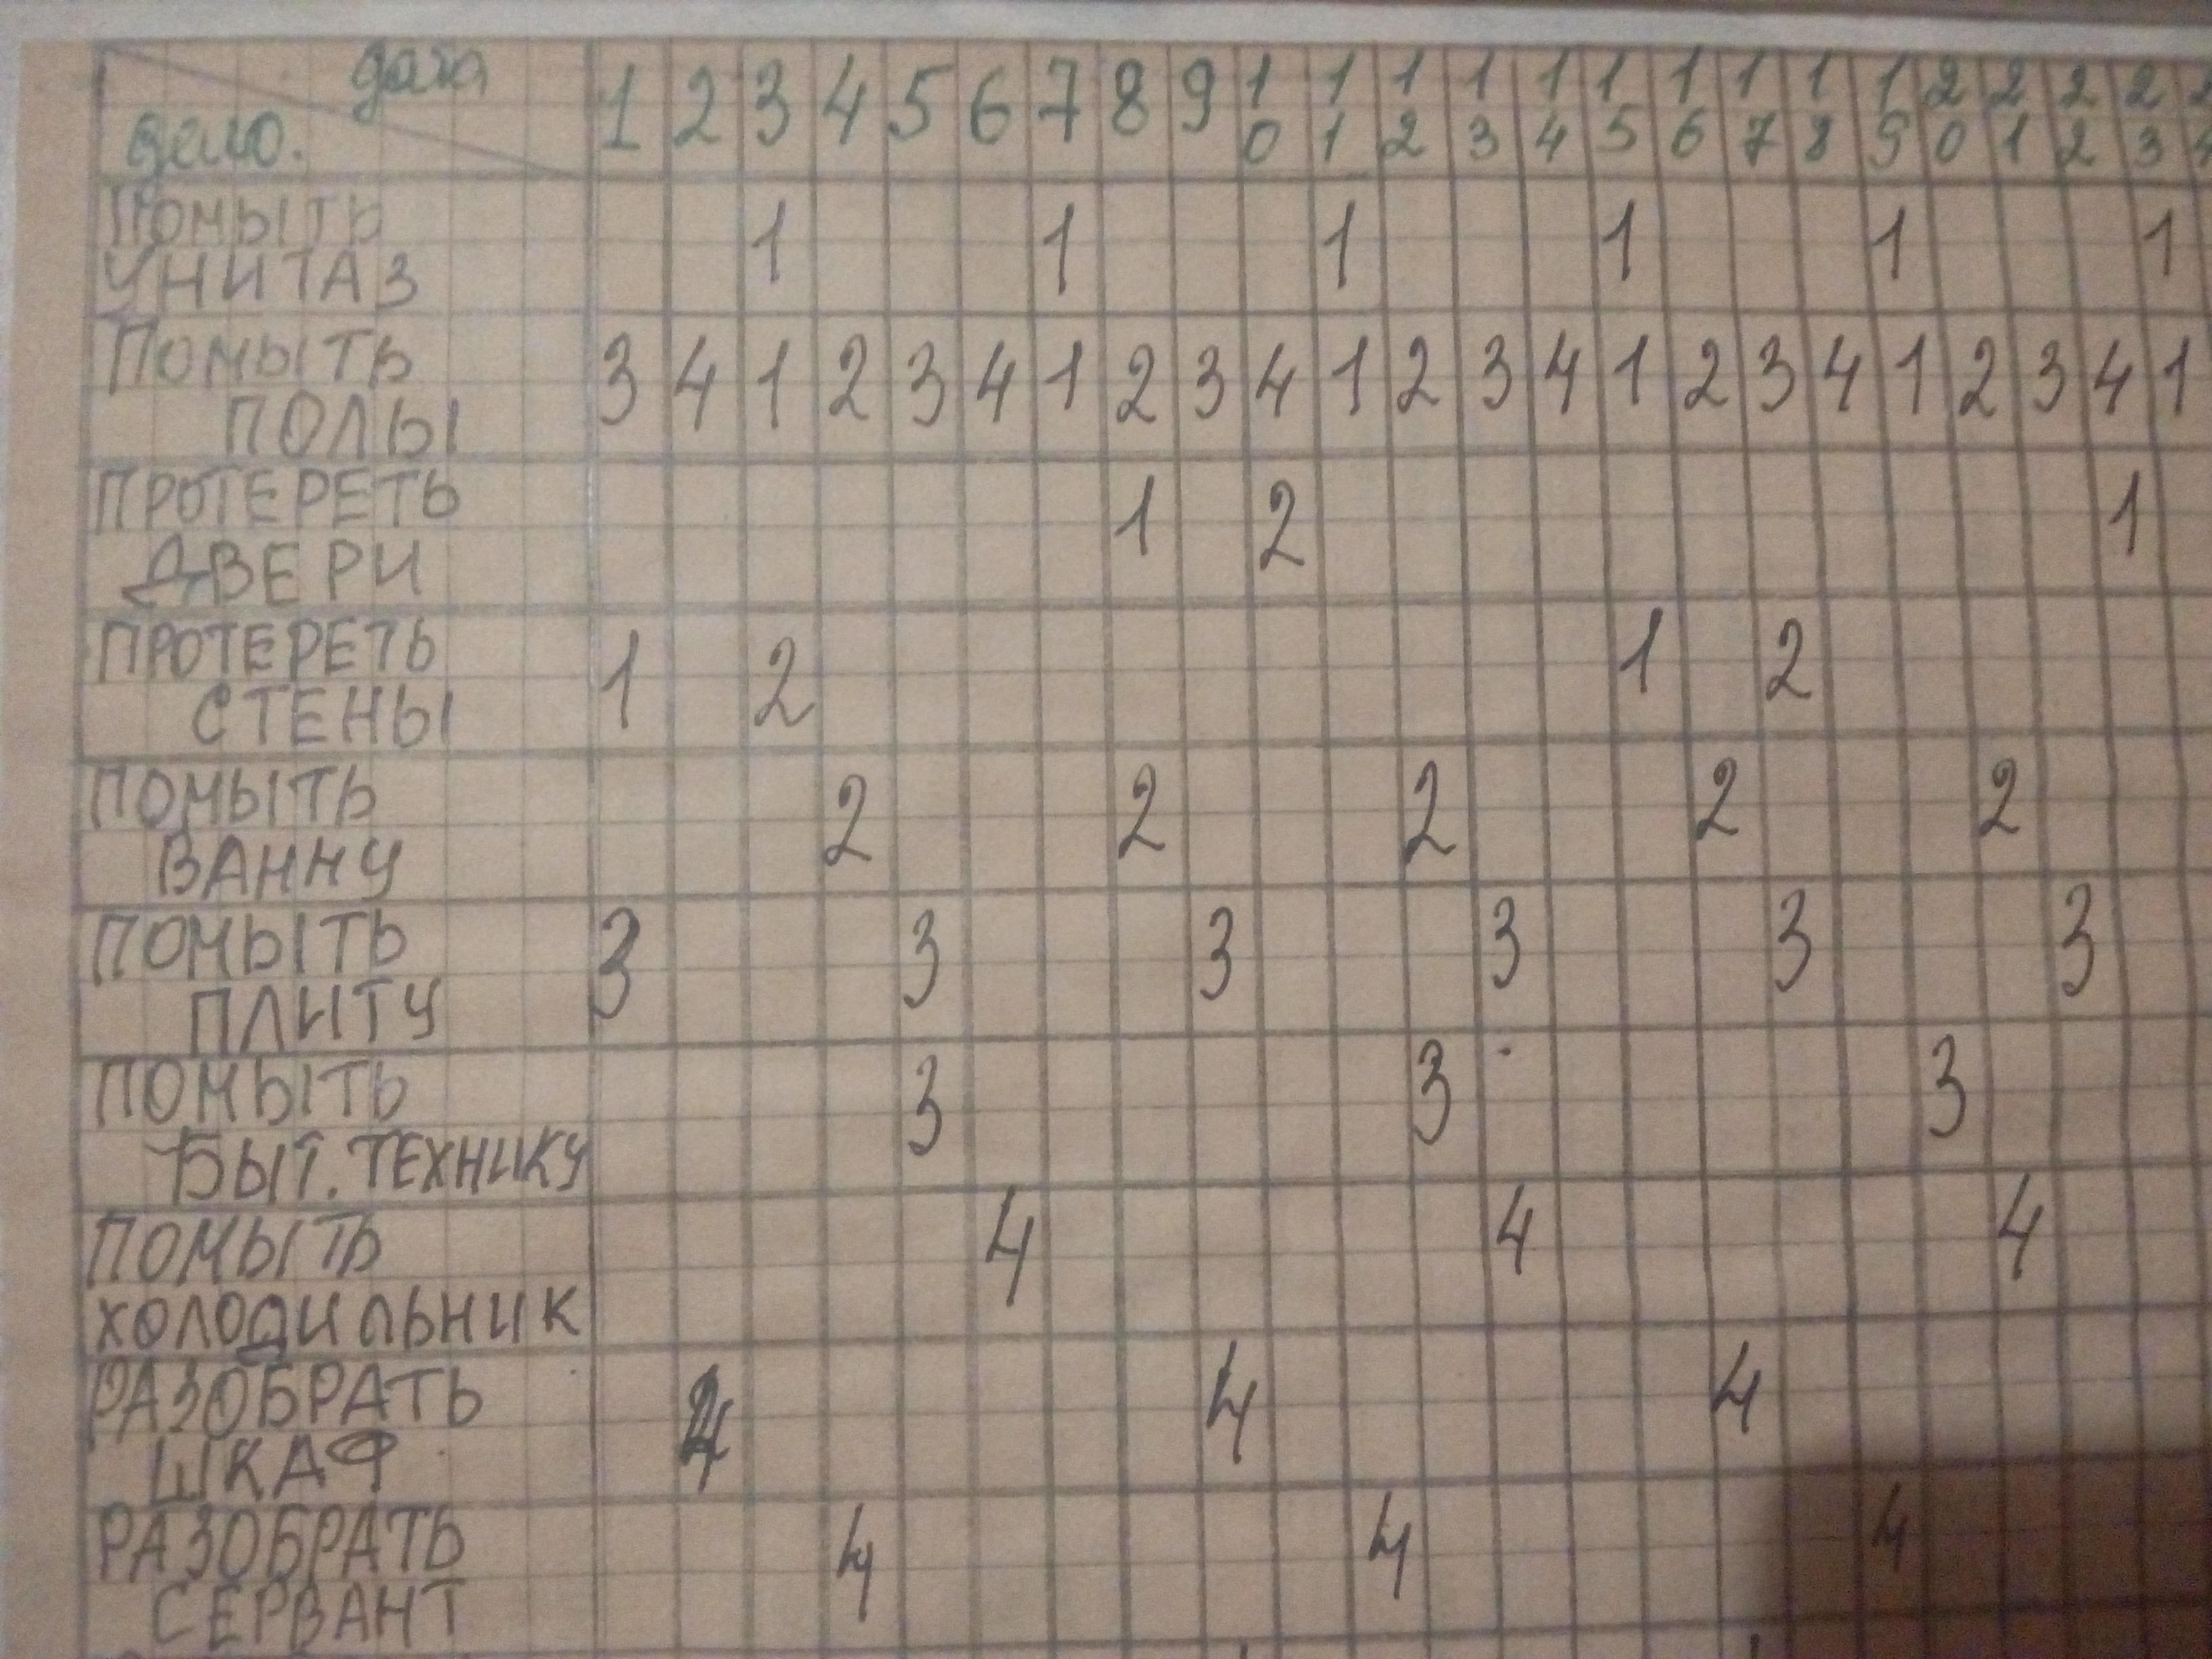 дата
дело. 1 2 3 4 5 6 7 8 9 10 11 12 13 14 15 16 17 18 19 20 21 22 23
ПОМЫТЬ
УНИТАЗ 1 1 1 1 1 1
ПОМЫТЬ
ПОЛЫ 3 4 1 2 3 4 1 2 3 4 1 2 3 4 1 2 3 4 1 2 3 4 1
ПРОТЕРЕТЬ
ДВЕРИ 1 2 1
ПРОТЕРЕТЬ
СТЕНЫ 1 2 1 2
ПОМЫТЬ
ВАННУ 2 2 2 2 2
ПОМЫТЬ
ПЛИТУ 3 3 3 3 3 3
ПОМЫТЬ
БЫТ. ТЕХНИКУ 3 3 3
ПОМЫТЬ
ХОЛОДИЛЬНИК 4 4 4
РАЗОБРАТЬ
ШКАФ 4 4 4
РАЗОБРАТЬ
СЕРВАНТ 4 4 4